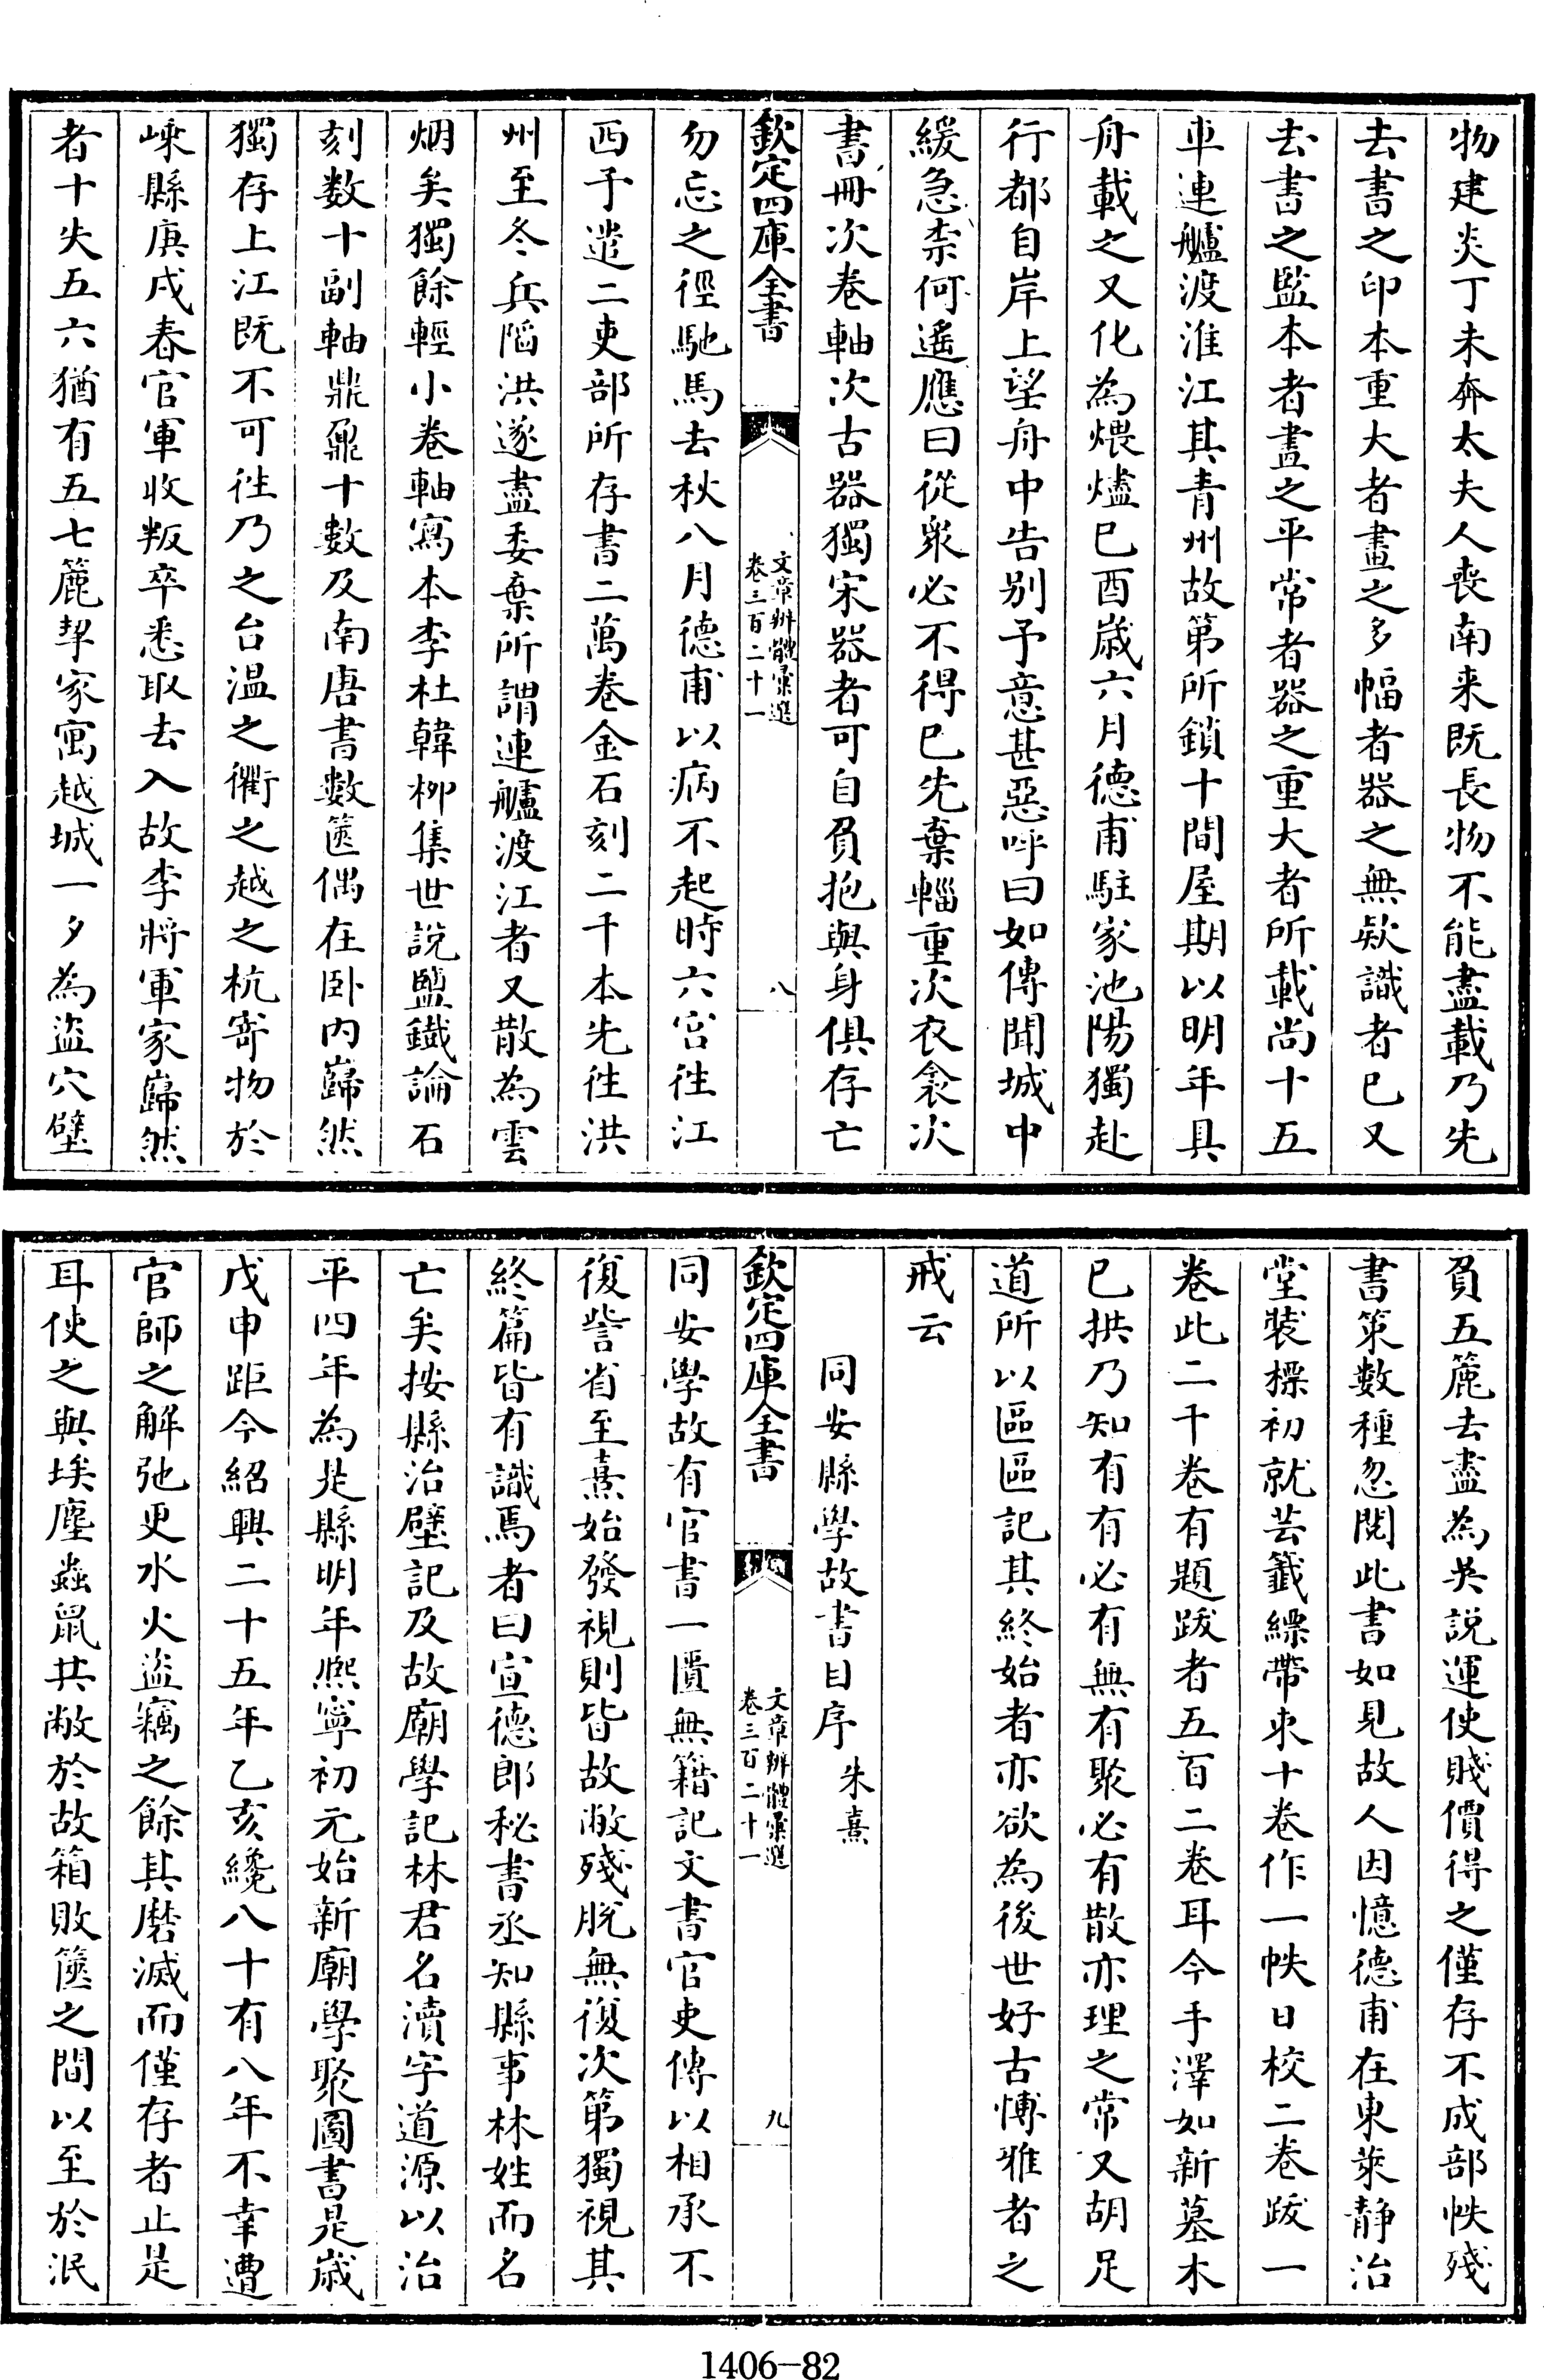 物建炎丁未奔太夫人喪南来既長物不能盡載乃先
去書之印本重大者畫之多幅者器之無欵識者已又
去書之監本者畫之平常者器之重大者所載尚十五
車連艫渡淮江其青州故第所鎖十間屋期以明年具
舟載之又化為煨燼已酉歳六月德甫駐家池陽獨赴
行都自岸上望舟中告别予意甚惡呼曰如傳聞城中
緩急柰何遙應曰從衆必不得已先棄輜重次衣衾次
書冊次卷軸次古器獨宋器者可自負抱與身俱存亡
欽定四庫全書
文章辨體彙選
卷三百二十一
八
勿忘之徑馳馬去秋八月德甫以病不起時六宫徃江
西予遣二吏部所存書二萬卷金石刻二千本先徃洪
州至冬兵䧟洪遂盡委棄所謂連艫渡江者又散為雲
烟矣獨餘輕小卷軸寫本李杜韓柳集世說鹽鐵論石
刻数十副軸鼎鼐十數及南唐書數篋偶在卧内巋然
獨存上江既不可徃乃之台温之衢之越之杭寄物於
嵊縣庚戌春官軍收叛卒悉取去入故李將軍家巋然
者十失五六猶有五七簏挈家寓越城一夕為盜穴壁
負五簏去盡為吳說運使賤價得之僅存不成部帙殘
書策數種忽閱此書如見故人因憶德甫在東萊静治
堂裝標初就芸籤縹帶束十卷作一帙日校二卷跋一
卷此二千卷有題跋者五百二卷耳今手澤如新墓木
已拱乃知有有必有無有聚必有散亦理之常又胡足
道所以區區記其終始者亦欲為後世好古愽雅者之
戒云
同安縣學故書目序 朱熹
欽定四庫全書
文章辨體彙選
卷三百二十一
九
同安學故有官書一匱無籍記文書官吏傳以相承不
復訾省至熹始發視則皆故敝殘脱無復次第獨視其
終篇皆有識焉者曰宣德郎秘書丞知縣事林姓而名
亡矣按縣治壁記及故廟學記林君名瀆字道源以治
平四年為是縣明年熈寧初元始新廟學聚圖書是歳
戊申距今紹興二十五年乙亥纔八十有八年不幸遭
官師之解弛更水火盜竊之餘其磨滅而僅存者止是
耳使之與埃塵蟲鼠共敝於故箱敗篋之間以至於泯
1406-82